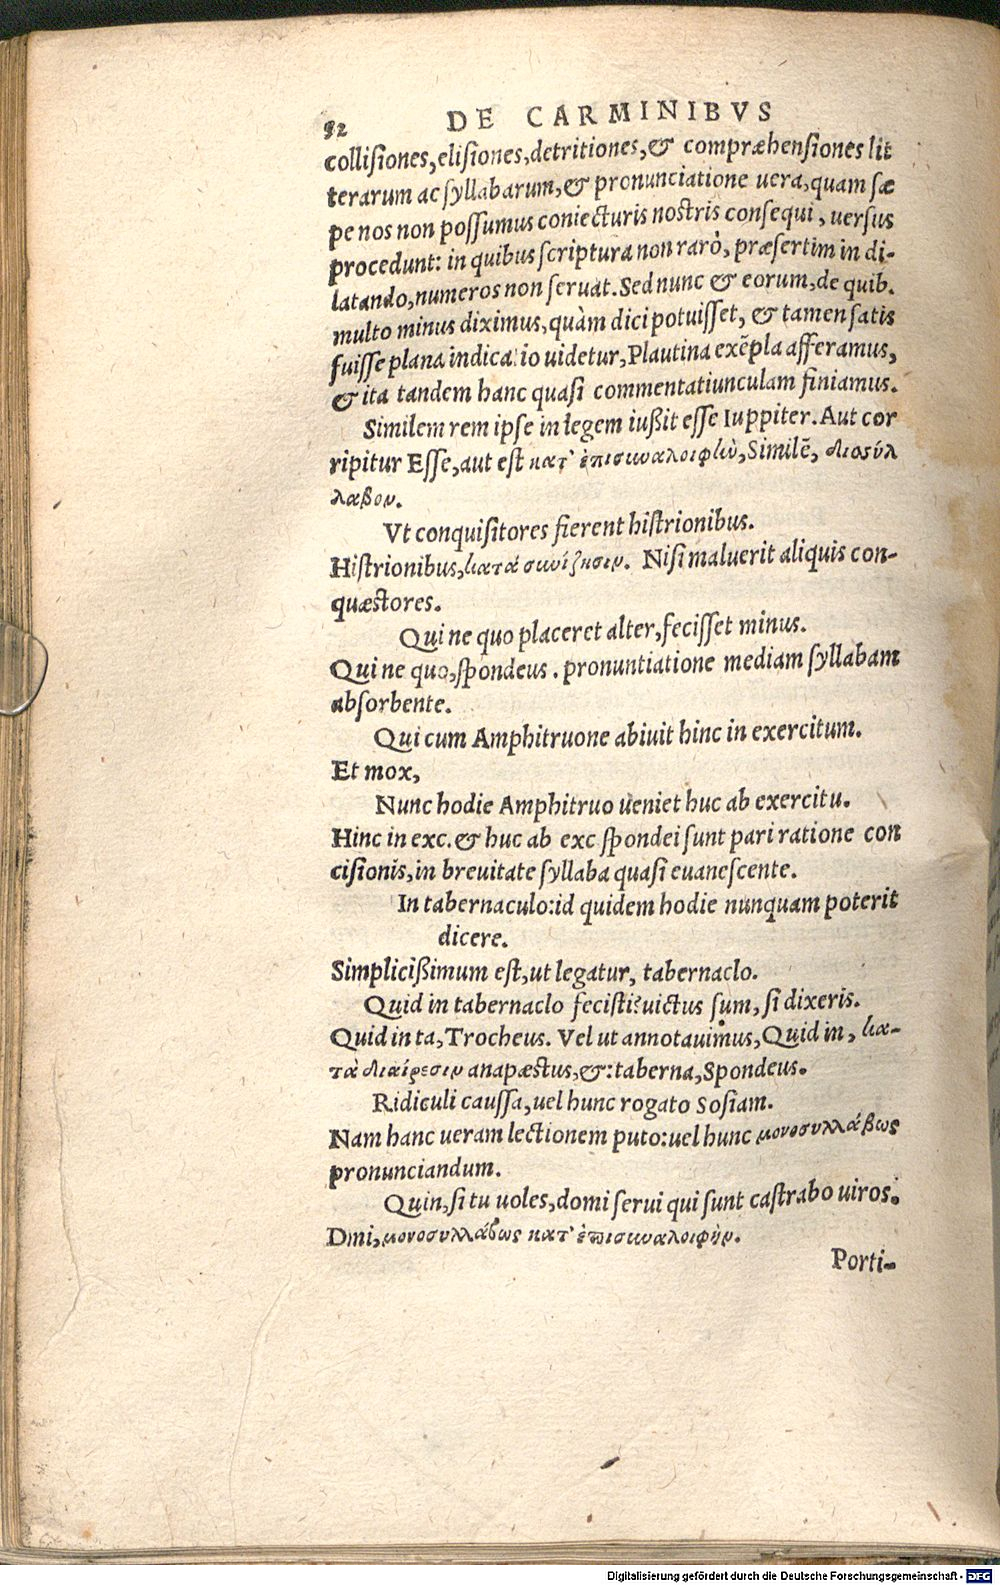 92 DE CARMINIBVS
collisiones, elisiones, detritiones, & compræhensiones lit
terarum ac syllabarum, & pronunciatione uera, quam sæ
pe nos non possumus coniecturis nostris consequi, uersus
procedunt: in quibus scriptura non rarò, præsertim in di-
latando, numeros non seruat. Sed nunc & eorum, de quib.
multo minus diximus, quàm dici potuisset, & tamen satis
fuisse plana indicatio uidetur, Plautina exẽpla afferamus,
& ita tandem hanc quasi commentatiunculam finiamus.
Similem rem ipse in legem iußit esse Iuppiter. Aut cor
ripitur Esse, aut est κατ' ἐπισυναλοιφὴν, Similẽ, δισύλ
λαβον.
Vt conquisitores fierent histrionibus.
Histrionibus, κατὰ συνίζησιν. Nisi maluerit aliquis con-
quæstores.
Qui ne quo placeret alter, fecisset minus.
Qui ne quo, spondeus. pronuntiatione mediam syllabam
absorbente.
Qui cum Amphitruone abiuit hinc in exercitum.
Et mox,
Nunc hodie Amphitruo ueniet huc ab exercitu.
Hinc in exc. & huc ab exc spondei sunt pari ratione con
cisionis, in breuitate syllaba quasi euanescente.
In tabernaculo: id quidem hodie nunquam poterit
dicere.
Simplicißimum est, ut legatur, tabernaclo.
Quid in tabernaclo fecisti? uictus sum, si dixeris.
Quid in ta, Trocheus. Vel ut annotauimus, Quid in, κα-
τὰ διαίρεσιν anapæstus, &: taberna, Spondeus.
Ridiculi caussa, uel hunc rogato Sosiam.
Nam hanc ueram lectionem puto: uel hunc μονοσυλλάβως
pronunciandum.
Quin, si tu uoles, domi serui qui sunt castrabo uiros.
Dmi, μονοσυλλάβως κατ' ἐπισυναλοιφὴν.
Porti-
Digitalisierung gefördert durch die Deutsche Forschungsgemeinschaft - DFG